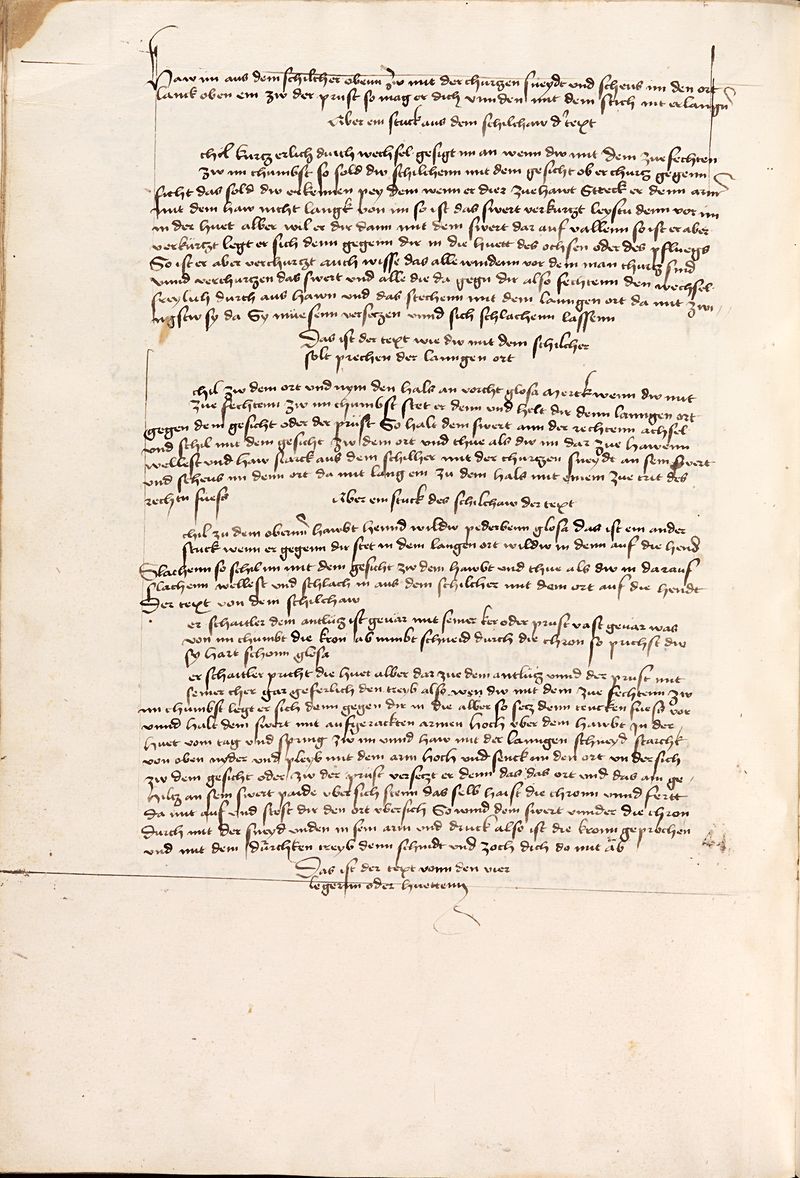 Haw im aus dem schilcher obenn zw mit der churczen sneydt und scheus im den ort
lanck oben ein zw der prust so mag er dich vnnden mit dem stich nit erlangn
Aber ein stuck aus dem schilchaw d' text
chil kurtz erlich durch wechsel gesigt im an wenn dw mit dem zue fechten
zw im chumbst so sold dw schilchenn mit dem gesicht ob er churcz gegenn
ficht das sold dw erkennen pey dem wenn er dier zuehawt Streck er denn arm
mit dem haw nicht langk von im so ist das swert verkurtzt leystu denn vor im
in der huet alber wil er dir dann mit dem swert dar auf vallenn so ist er aber
verkürtzt legt er sich denn gegenn dir in die huett des ochsen oder des pfluegs
So ist er aber verchurczt auch wisse das alle windenn vor dem man churcz sind
vnnd verchurczen das swert und alle die da gegn dir also fechtenn den wechsel
freylich durch aus hawn und das stechenn mit dem lanngen ort da mit zwi
ngstw sy da Sy müesenn verseczen vnnd sich schlachenn lassenn
Das ist der text wie dw mit dem schilcher
solt prechen der lanngen ort
chil zw dem ort und nym den hals an vorcht glosa Merck wenn dw mit
zue fechtenn zw im chumbst stet er denn und helt dir denn lanngen ort
gegen dem gesicht oder der prust So halt dem swert ann der rechtenn achsel
und schil mit dem gesicht zw dem ort und thue als dw im dar zue hawenn
wellest und haw starck aus dem schilher mit der churczen sneydt an sein swert
und scheus im denn ort da mit lang ein zu dem hals mit einem zue trit des
rechtn fuess
Aber ein stuck des schilchaw der text
chil zu dem obernn hawbt hennd wildw pederbenn glosa das ist ein ander
stuck wenn er gegenn dir stet in dem langen ort wildw in denn auf die hend
Slachenn so schil im mit dem gesicht zw dem hawbt und thue als dw in darauf
slachenn wellest und schlach in aus dem schilcher mit dem ort auf die hendt
Der text von dem schilchaw
er schaitler dem antlücz ist gevar mit seiner ker oder prust vast gevar was
von im chumbt die kron ab nimbt schneid durch die chron so prichst dw
sy hart schonn glosa
er schaitler pricht die huet alber dar zue dem antlücz vnnd der prust mit
seiner cher gar geferlich den treyb also wen dw mit dem zue fechtenn zw
im chumbst legt er sich denn gegen dir in die alber so secz denn lincken fuess vor
vnnd halt dein swert mit aufgerackten armen hoch vber dem hawbt in der
huet vom tag und spring zw im vnnd haw mit der lanngen schneyd starchk
von oben nyder und pleyb mit dem arm hoch und senck im den ort vndersich
zw dem gesicht oder zw der prust verseczt er denn das das ort und das ain ge
hilcz an sein swert paide vbersich stenn das selb haist die chronn vnnd fertt
da mit auf und stost dir den ort vbersich So wind dem swert vnnder die chron
durch mit der sneyd vnden in sein arm und druck also ist die kronn geprochen
und mit dem drucken treyb denn schnidt und zoch dich do mit ab
Das ist der text vonn den vier
legernn oder huettenn